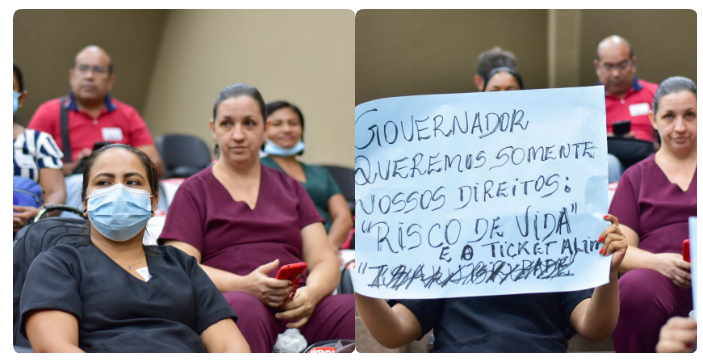 GOVERNADOR
QUEREMOS SOMENTE
NOSSOS DIREITOS:
"RISCO DE VIDA"
E O TICKET ALIM